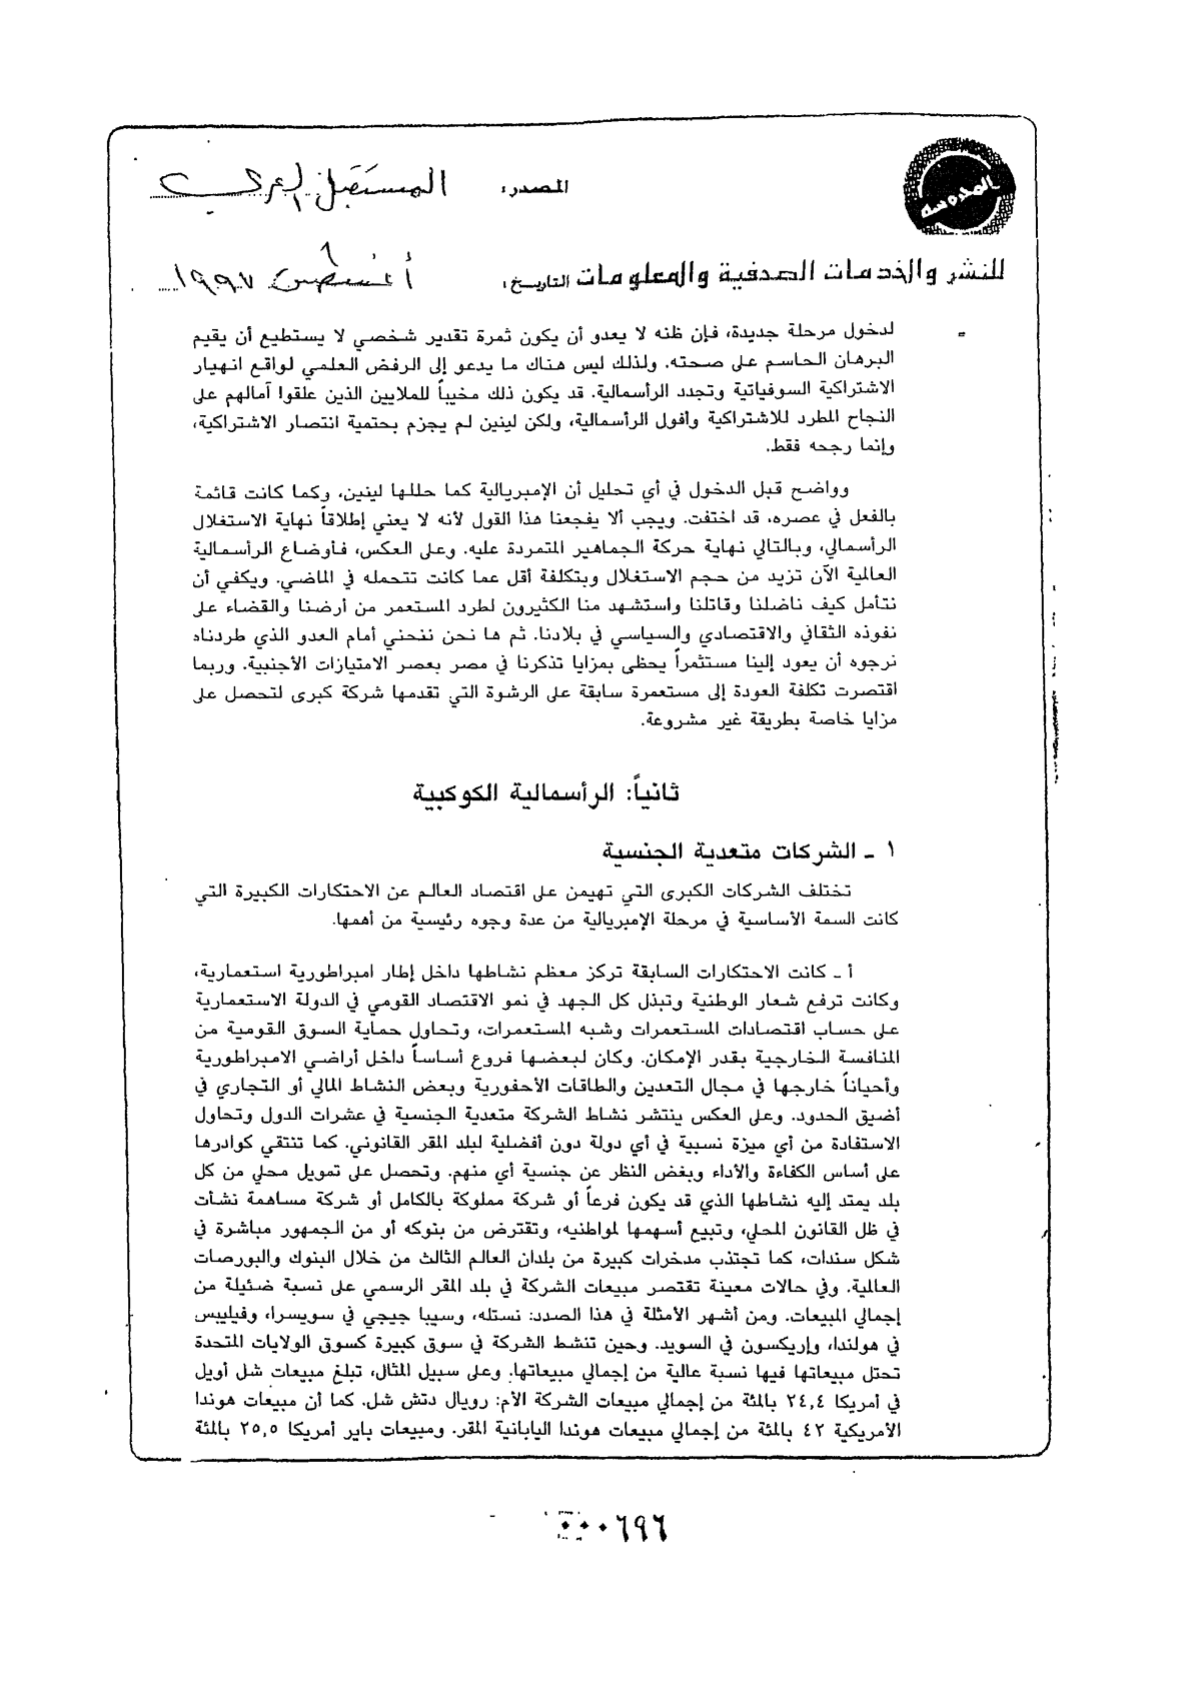 المحروسة
المصدر: المستقبل العربى
للنشر والخدمات الصحفية والمعلومات التاريخ: أغسطس ١٩٩٧
لدخول مرحلة جديدة، فإن ظنه لا يعدو أن يكون ثمرة تقدير شخصي لا يستطيع أن يقيم
البرهان الحاسم على صحته. ولذلك ليس هناك ما يدعو إلى الرفض العلمي لواقع انهيار
الاشتراكية السوفياتية وتجدد الرأسمالية. قد يكون ذلك مخيباً للملايين الذين علقوا آمالهم على
النجاح المطرد للاشتراكية وأفول الرأسمالية، ولكن لينين لم يجزم بحتمية انتصار الاشتراكية،
وإنما رجحه فقط.
وواضح قبل الدخول في أي تحليل أن الإمبريالية كما حللها لينين، وكما كانت قائمة
بالفعل في عصره، قد اختفت. ويجب ألا يفجعنا هذا القول لأنه لا يعني إطلاقاً نهاية الاستغلال
الرأسمالي، وبالتالي نهاية حركة الجماهير المتمردة عليه. وعلى العكس، فأوضاع الرأسمالية
العالمية الآن تزيد من حجم الاستغلال وبتكلفة أقل عما كانت تتحمله في الماضي. ويكفي أن
نتأمل كيف ناضلنا وقاتلنا واستشهد منا الكثيرون لطرد المستعمر من أرضنا والقضاء على
نفوذه الثقافي والاقتصادي والسياسي في بلادنا. ثم ها نحن ننحني أمام العدو الذي طردناه
نرجوه أن يعود إلينا مستثمراً يحظى بمزايا تذكرنا في مصر بعصر الامتيازات الأجنبية. وربما
اقتصرت تكلفة العودة إلى مستعمرة سابقة على الرشوة التي تقدمها شركة كبرى لتحصل على
مزايا خاصة بطريقة غير مشروعة.
ثانياً: الرأسمالية الكوكبية
١ ـ الشركات متعدية الجنسية
تختلف الشركات الكبرى التي تهيمن على اقتصاد العالم عن الاحتكارات الكبيرة التي
كانت السمة الأساسية في مرحلة الإمبريالية من عدة وجوه رئيسية من أهمها.
أ ـ كانت الاحتكارات السابقة تركز معظم نشاطها داخل إطار امبراطورية استعمارية،
وكانت ترفع شعار الوطنية وتبذل كل الجهد في نمو الاقتصاد القومي في الدولة الاستعمارية
على حساب اقتصادات المستعمرات وشبه المستعمرات، وتحاول حماية السوق القومية من
المنافسة الخارجية بقدر الإمكان. وكان لبعضها فروع أساساً داخل أراضي الامبراطورية
وأحياناً خارجها في مجال التعدين والطاقات الأحفورية وبعض النشاط المالي أو التجاري في
أضيق الحدود. وعلى العكس ينتشر نشاط الشركة متعدية الجنسية في عشرات الدول وتحاول
الاستفادة من أي ميزة نسبية في أي دولة دون أفضلية لبلد المقر القانوني. كما تنتقي كوادرها
على أساس الكفاءة والأداء وبغض النظر عن جنسية أي منهم. وتحصل على تمويل محلي من كل
بلد يمتد إليه نشاطها الذي قد يكون فرعاً أو شركة مملوكة بالكامل أو شركة مساهمة نشأت
في ظل القانون المحلي، وتبيع أسهمها لمواطنيه، وتقترض من بنوكه أو من الجمهور مباشرة في
شكل سندات، كما تجتذب مدخرات كبيرة من بلدان العالم الثالث من خلال البنوك والبورصات
العالمية. وفي حالات معينة تقتصر مبيعات الشركة في بلد المقر الرسمي على نسبة ضئيلة من
إجمالي المبيعات. ومن أشهر الأمثلة في هذا الصدد: نستله، وسيبا جيجي في سويسرا، وفيليبس
في هولندا، وإريكسون في السويد. وحين تنشط الشركة في سوق كبيرة كسوق الولايات المتحدة
تحتل مبيعاتها فيها نسبة عالية من إجمالي مبيعاتها. وعلى سبيل المثال، تبلغ مبيعات شل أويل
في أمريكا ٢٤,٤ بالمئة من إجمالي مبيعات الشركة الأم: رويال دتش شل. كما أن مبيعات هوندا
الأمريكية ٤٢ بالمئة من إجمالي مبيعات هوندا اليابانية المقر. ومبيعات باير أمريكا ٢٥,٥ بالمئة
٠٠٠٦٩٦